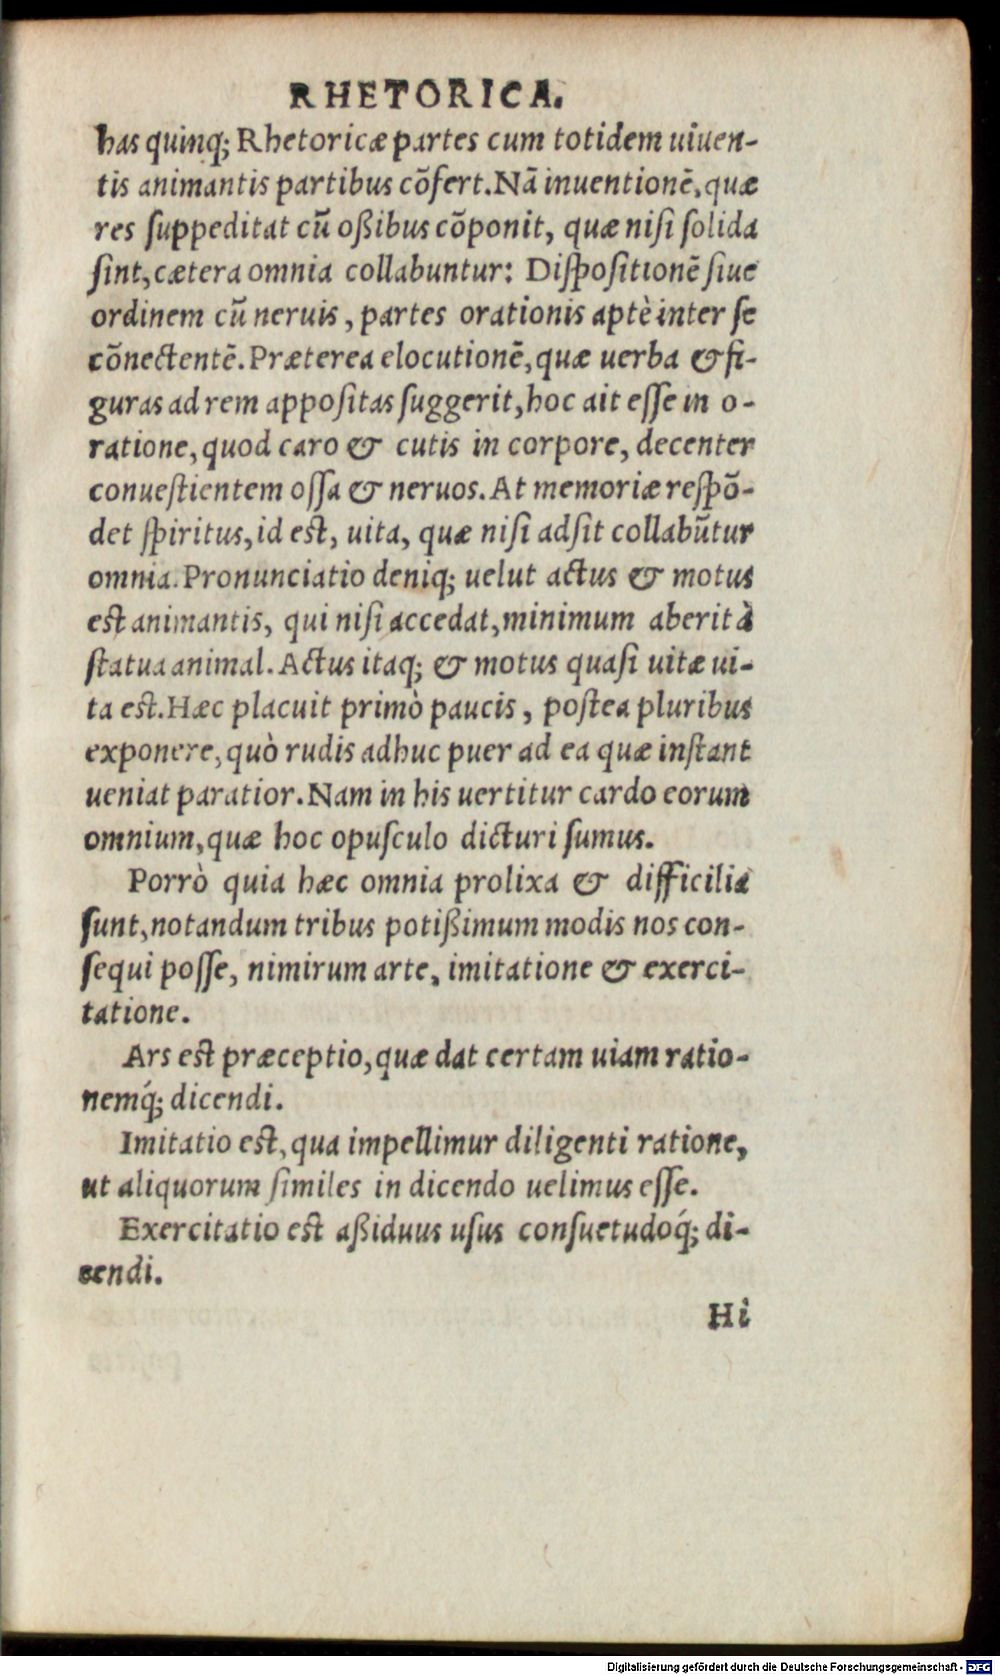 RHETORICA.
has quinq; Rhetoricæ partes cum totidem uiuen-
tis animantis partibus cõfert. Nã inuentionẽ, quæ
res ſuppeditat cũ oßibus cõponit, quæ niſi ſolida
ſint, cætera omnia collabuntur: Diſpoſitionẽ ſiue
ordinem cũ neruis, partes orationis aptè inter ſe
cõnectentẽ. Præterea elocutionẽ, quæ uerba & fi-
guras ad rem appoſitas ſuggerit, hoc ait eſſe in o-
ratione, quod caro & cutis in corpore, decenter
conueſtientem oſſa & neruos. At memoriæ reſpõ-
det ſpiritus, id eſt, uita, quæ niſi adſit collabũtur
omnia. Pronunciatio deniq; uelut actus & motus
eſt animantis, qui niſi accedat, minimum aberit à
ſtatua animal. Actus itaq; & motus quaſi uitæ ui-
ta eſt. Hæc placuit primò paucis, poſtea pluribus
exponere, quò rudis adhuc puer ad ea quæ inſtant
ueniat paratior. Nam in his uertitur cardo eorum
omnium, quæ hoc opuſculo dicturi ſumus.
Porrò quia hæc omnia prolixa & difficilia
ſunt, notandum tribus potißimum modis nos con-
ſequi poſſe, nimirum arte, imitatione & exerci-
tatione.
Ars eſt præceptio, quæ dat certam uiam ratio-
nemq́; dicendi.
Imitatio eſt, qua impellimur diligenti ratione,
ut aliquorum ſimiles in dicendo uelimus eſſe.
Exercitatio eſt aßiduus uſus conſuetudoq́; di-
cendi.
Hi
Digitalisierung gefördert durch die Deutsche Forschungsgemeinschaft - DFG